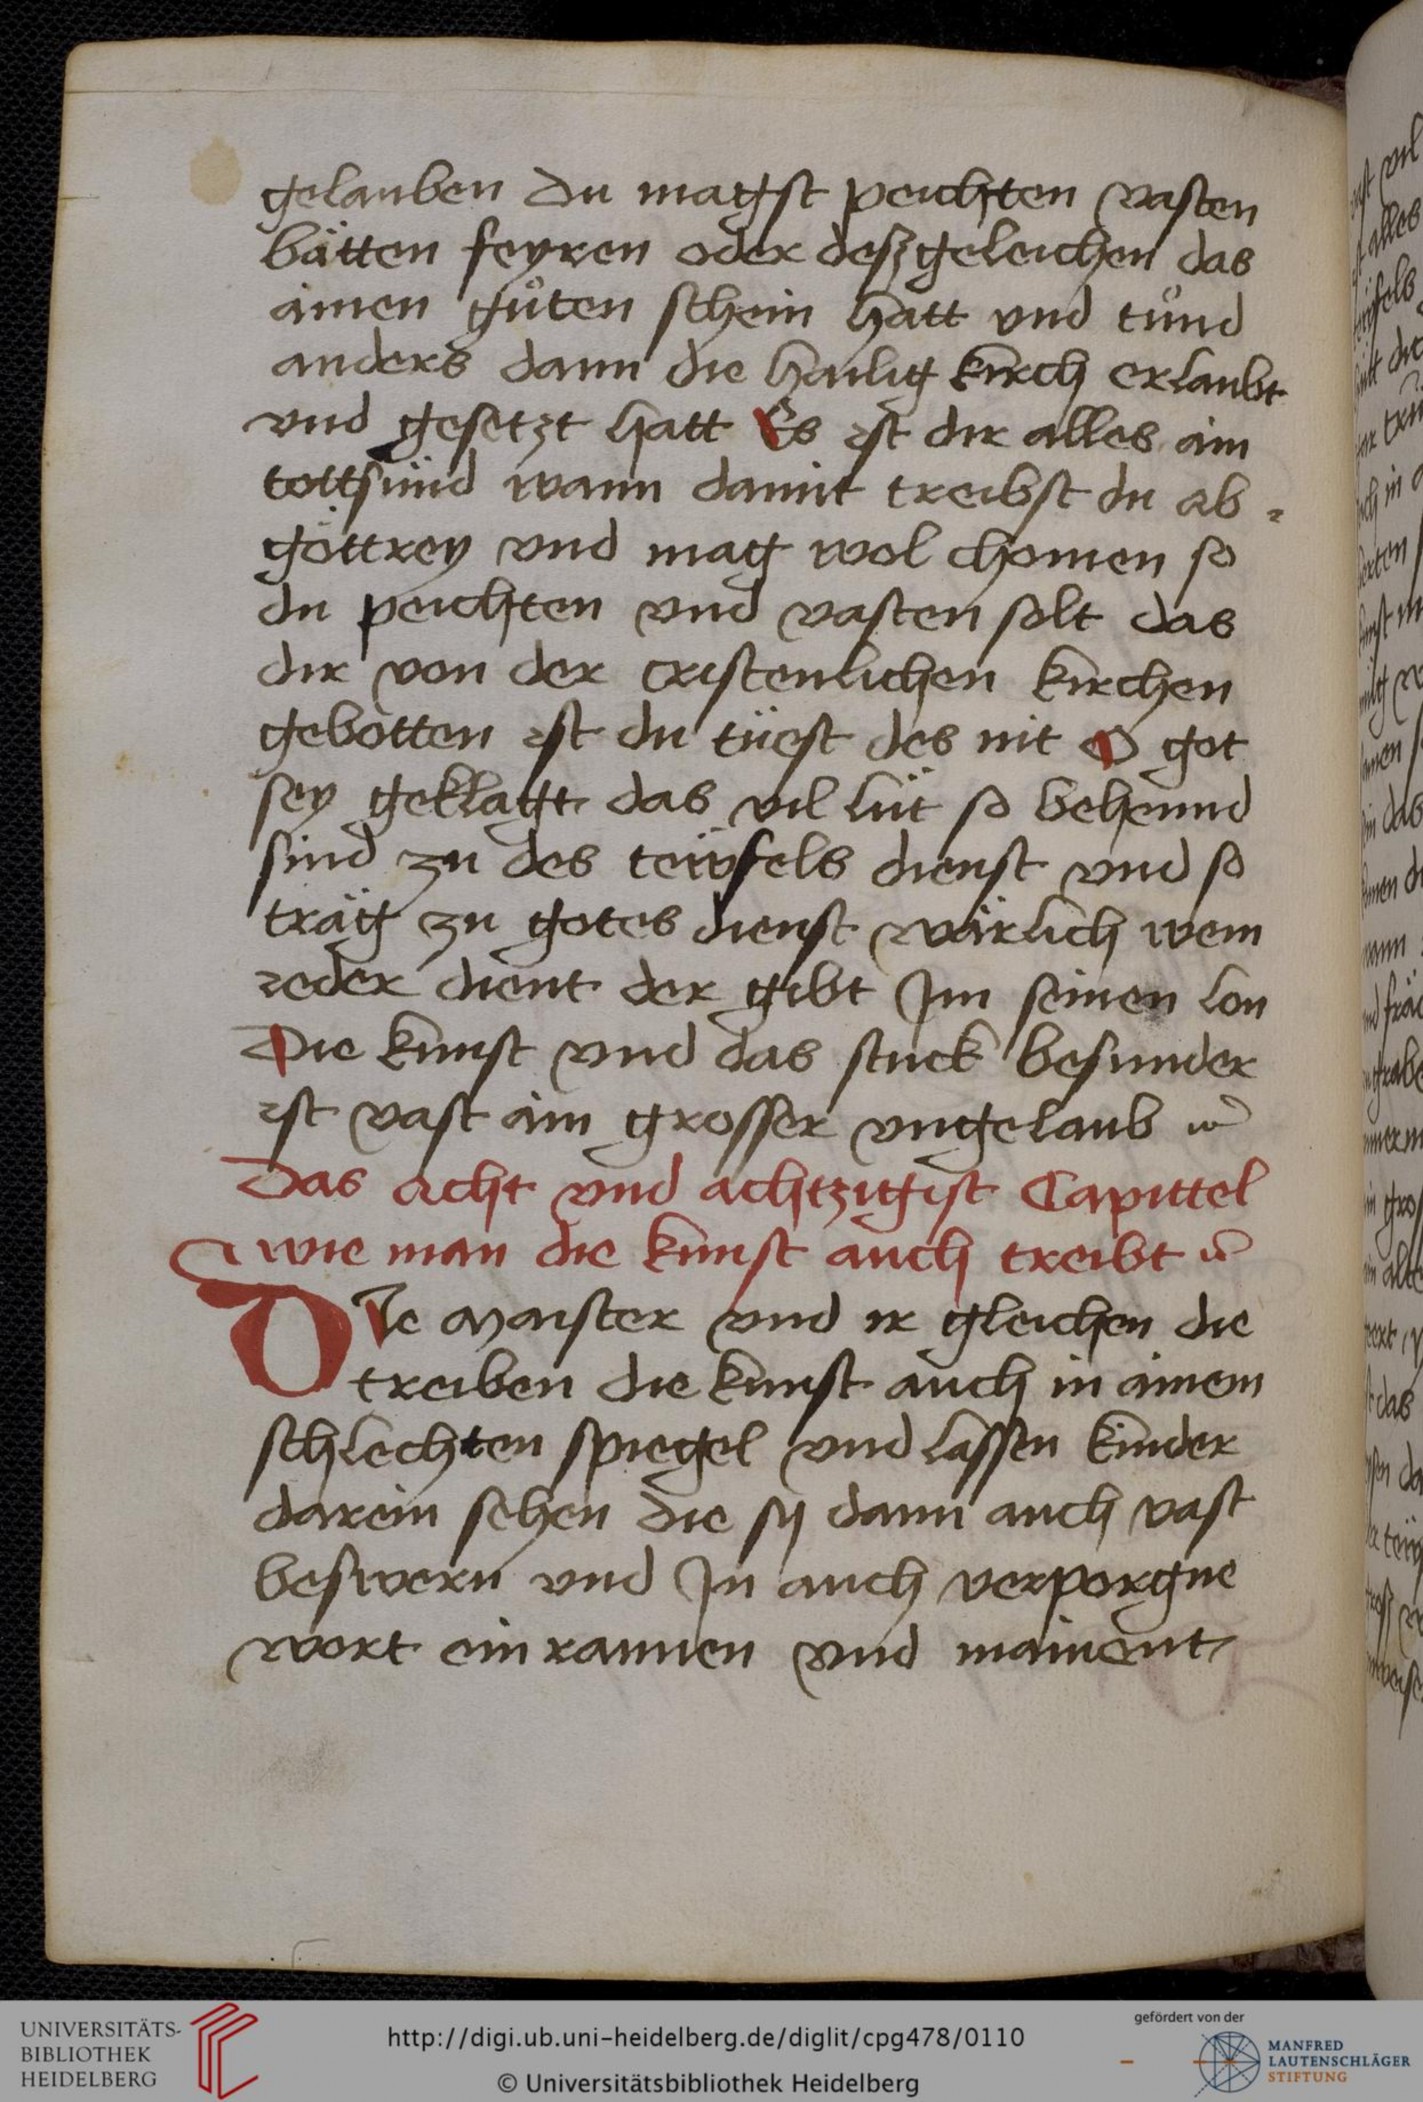 gelauben du magst peichten vasten
bätten feyren oder deßgeleichen das
ainen gůten schein hatt vnd tůnd
anders dann die hailig kirch erlaubt
vnd gesetzt hatt Es ist dir alles ain
tottsünd wann damit treibst du ab-
göttrey vnd mag wol chomen so
du peichten vnd vasten solt das
dir von der cristenlichen kirchen
gebotten ist du tüest des nit O got
sey geklagt das vil lüt so behennd
sind zu des teüfels dienst vnd so
träg zu gotes dienst wärlich wem
ieder dient der gibt Im seinen lon
Die kunst vnd das stuck besunder
ist vast ain grosser vngelaub
Das acht vnd achtzigist Capittel
wie man die kunst auch treibt
DIe maister vnd ir gleichen die
treiben die kunst auch in ainem
schlechten spiegel vnd lassen kinder
darein sehen die sy dann auch vast
beswern vnd In auch verporgne
wort ein raunen vnd mainent
UNIVERSITÄTS-
BIBLIOTHEK
HEIDELBERG
http://digi.ub.uni-heidelberg.de/diglit/cpg478/0110
© Universitätsbibliothek Heidelberg
gefördert von der
MANFRED
LAUTENSCHLÄGER
STIFTUNG